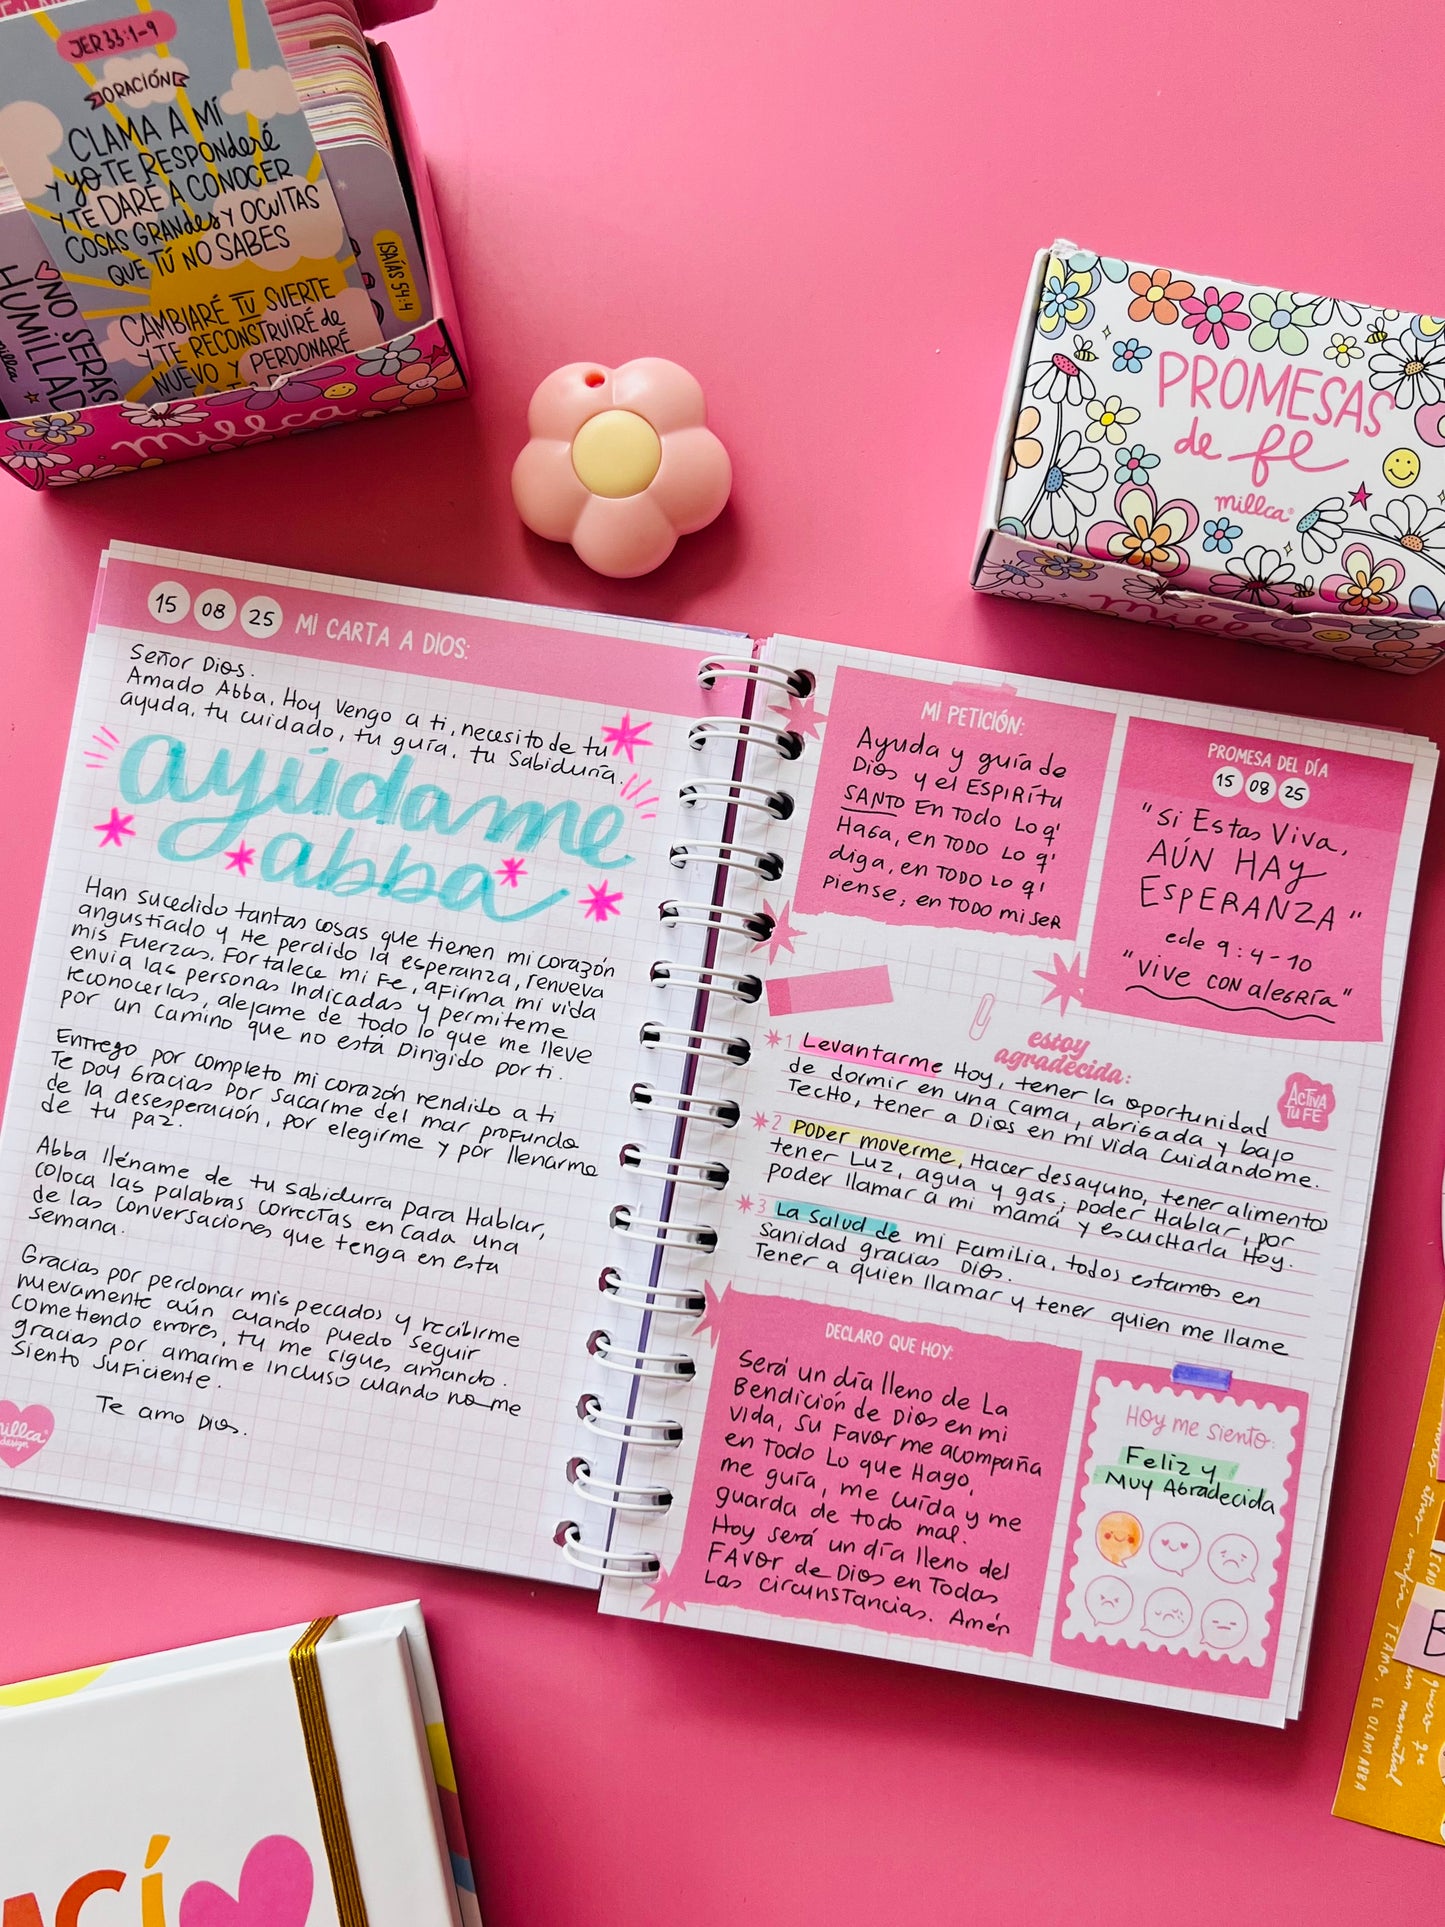 JER 33:1-9
ORACIÓN
CLAMA A MÍ
Y YO TE RESPONDERÉ
Y TE DARÉ A CONOCER
COSAS GRANDES Y OCULTAS
QUE TÚ NO SABES
CAMBIARÉ TU SUERTE
Y TE RECONSTRUIRÉ de
NUEVO Y PERDONARÉ
ISAÍAS 54:4
NO SERÁS
HUMILLAD
millca
millca
PROMESAS
de fe
millca
15 08 25 MI CARTA A DIOS:
Señor Dios.
Amado Abba, Hoy vengo a ti, necesito de tu
ayuda, tu cuidado, tu guía, tu Sabiduría.
ayúdame
abba
Han sucedido tantas cosas que tienen mi corazón
angustiado y He perdido la esperanza, renueva
mis Fuerzas, Fortalece mi Fe, afirma mi vida
envia las personas indicadas y permiteme
reconocerlas, alejame de todo lo que me lleve
por un camino que no está Dirigido por ti.
Entrego por completo mi corazón rendido a ti
Te Doy Gracias por sacarme del mar profundo
de la desesperación, por elegirme y por llenarme
de tu paz.
Abba lléname de tu sabidurra para Hablar,
coloca las palabras correctas en cada una
de las conversaciones que tenga en esta
semana.
Gracias por perdonar mis pecados y recibirme
nuevamente aún cuando puedo seguir
cometiendo errores, tu me sigues amando.
gracias por amarme incluso cuando no me
siento suficiente.
Te amo Dios.
millca
design
MI PETICIÓN:
Ayuda y guía de
Dios y el ESPIRítu
SANTO EN TODO Lo q'
Haga, en TODO Lo q'
diga, en TODO Lo q'
piense, en TODO mi ser
PROMESA DEL DÍA
15 08 25
"Si Estas Viva,
AÚN HAY
ESPERANZA"
ecle 9:4-10
"Vive con alegría"
estoy
agradecida:
ACTIVA
TU FE
1 Levantarme Hoy, tener la oportunidad
de dormir en una cama, abrigada y bajo
TecHo, tener a Dios en mi vida cuidándome.
2 PODER moverme, Hacer desayuno, tener alimento
tener Luz, agua y gas, poder Hablar, por
poder llamar a mi mamá y escucHarla Hoy.
3 La Salud de mi Familia, todos estamos en
Sanidad gracias Dios.
Tener a quien llamar y tener quien me llame
DECLARO QUE HOY:
Será un día lleno de La
Bendición de Dios en mi
vida, su Favor me acompaña
en Todo Lo que Hago,
me guía, me cuida y me
guarda de todo mal.
Hoy será un día lleno del
FAvor de Dios en Todas
Las circunstancias. Amén
HOY me siento:
Feliz y
MUY AGradecida
TEAMO, EL OLAM ABBA